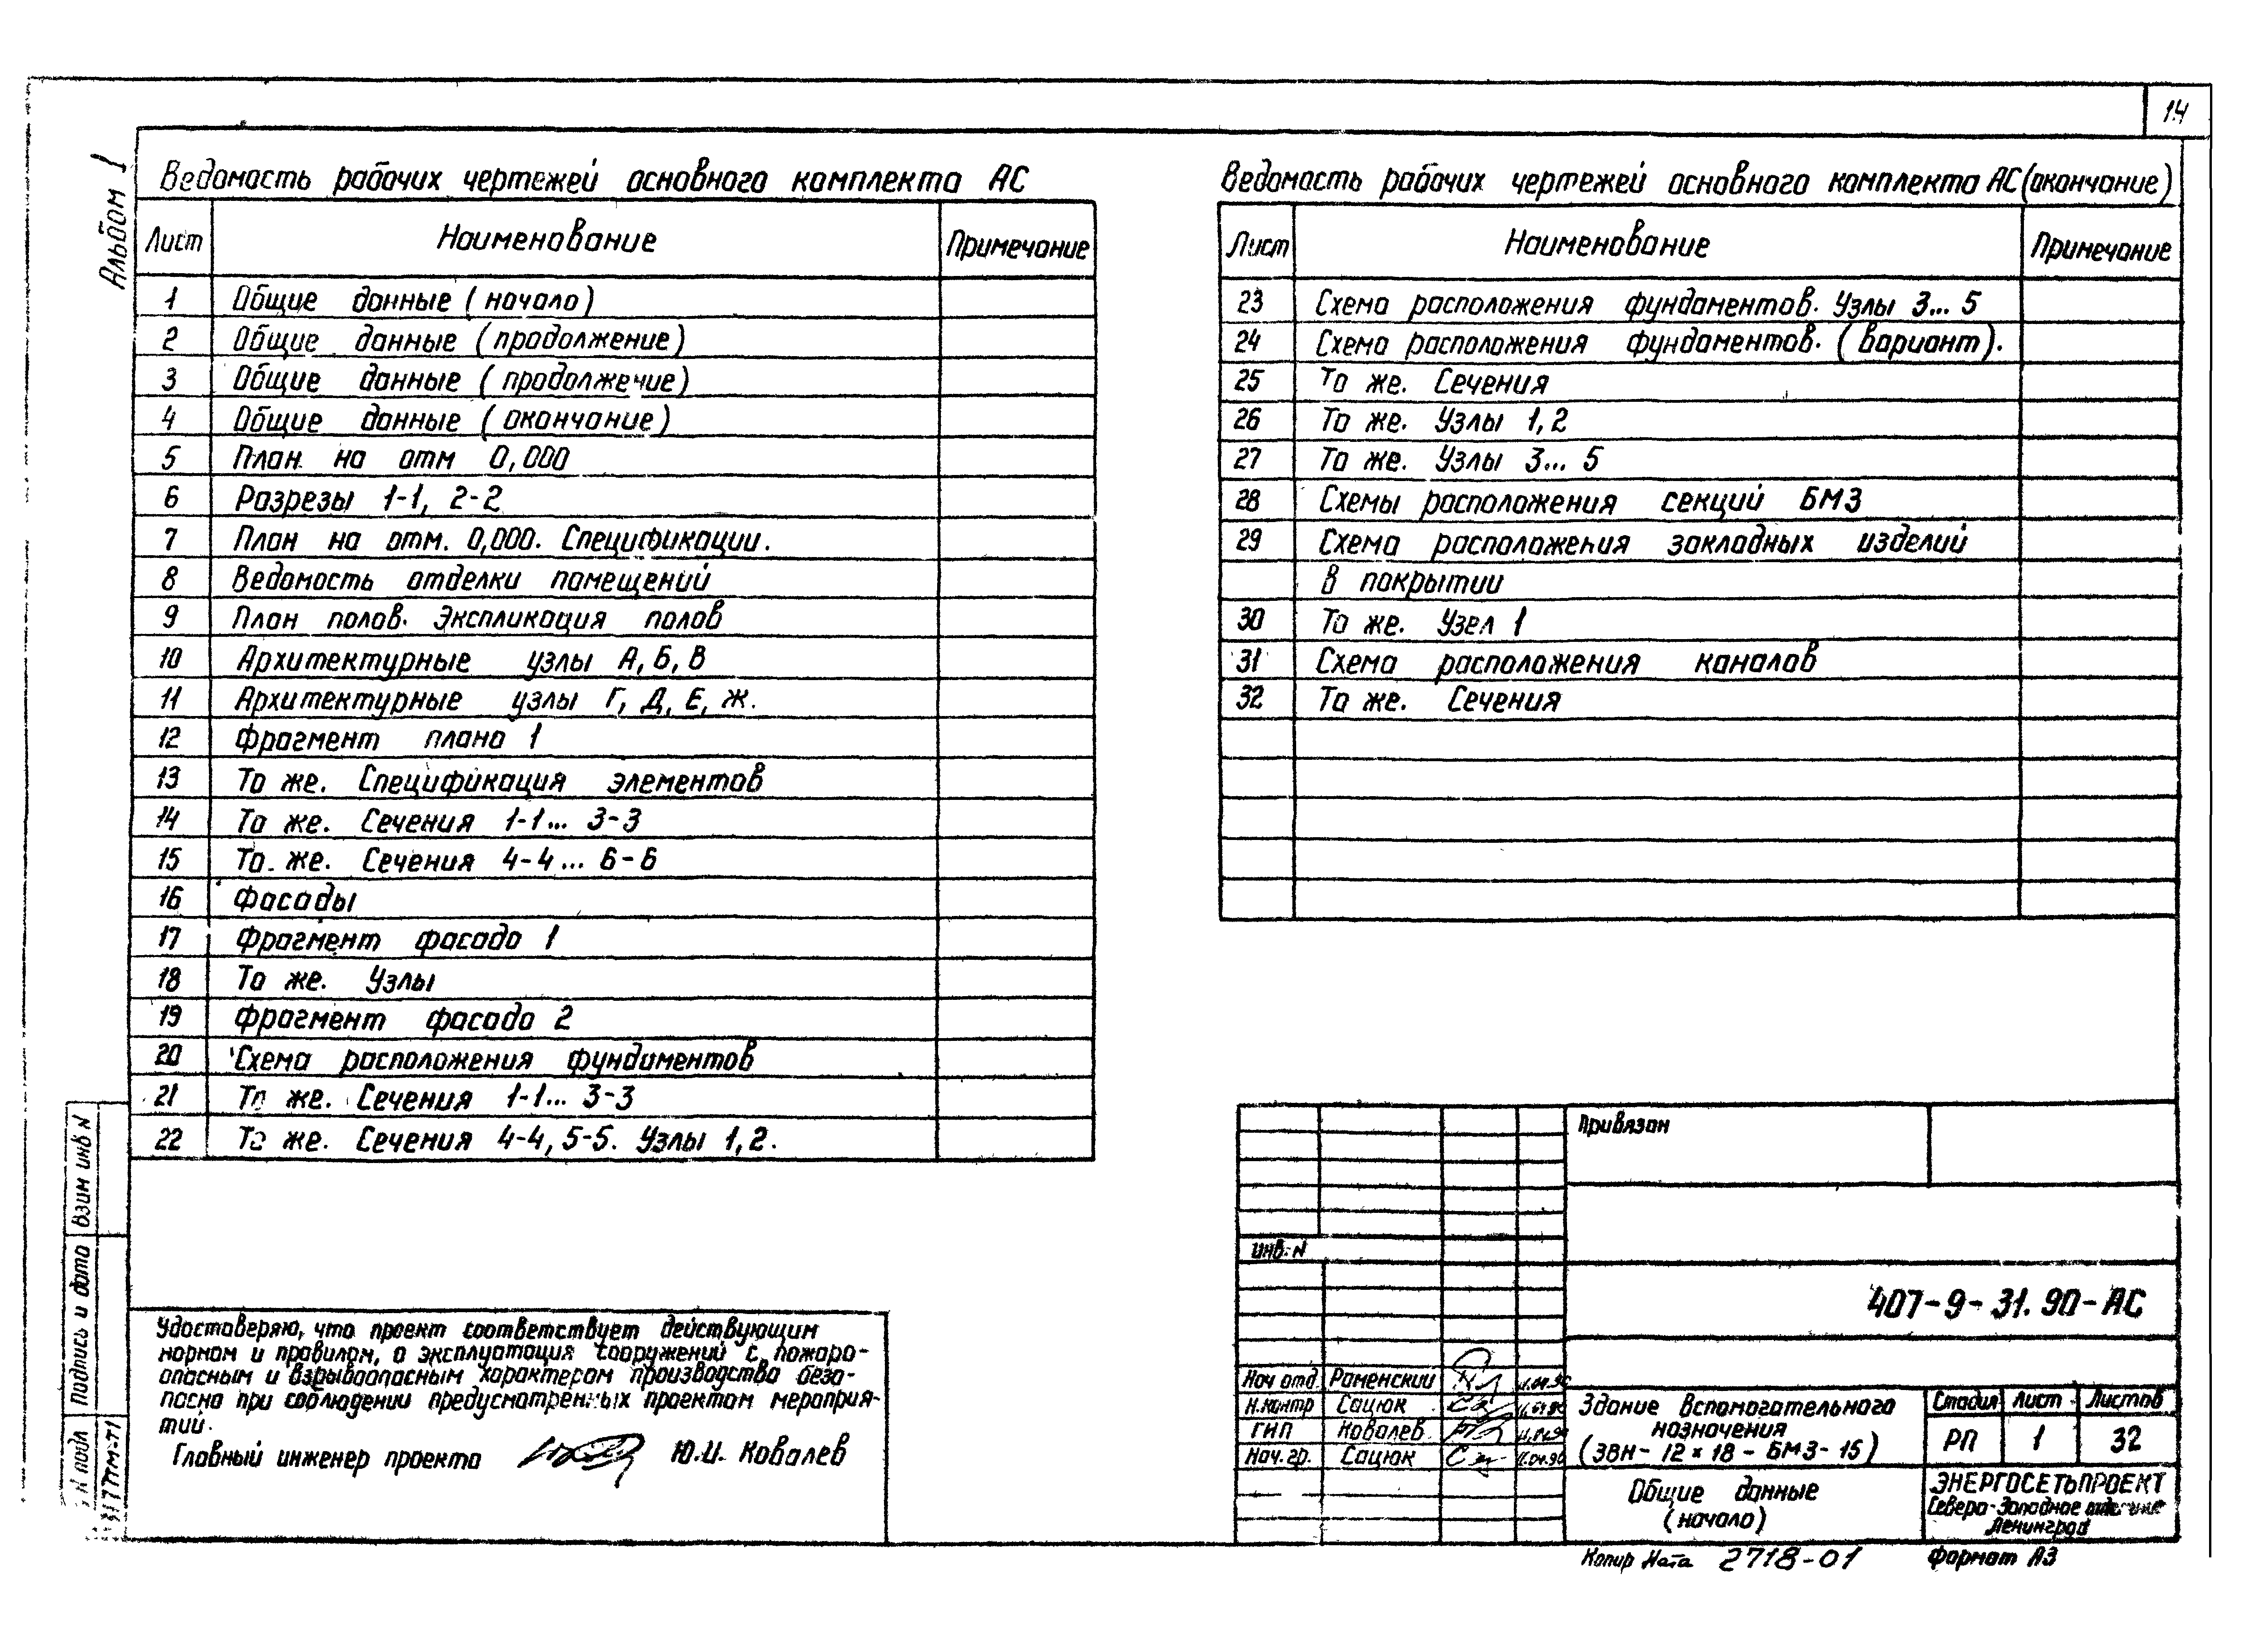 14
Альбом 1
Ведомость рабочих чертежей основного комплекта АС
Лист Наименование Примечание
1 Общие данные (начало)
2 Общие данные (продолжение)
3 Общие данные (продолжение)
4 Общие данные (окончание)
5 План на отм 0,000
6 Разрезы 1-1, 2-2
7 План на отм. 0,000. Спецификации.
8 Ведомость отделки помещений
9 План полов. Экспликация полов
10 Архитектурные узлы А, Б, В
11 Архитектурные узлы Г, Д, Е, Ж.
12 Фрагмент плана 1
13 То же. Спецификация элементов
14 То же. Сечения 1-1... 3-3
15 То же. Сечения 4-4... 6-6
16 Фасады
17 Фрагмент фасада 1
18 То же. Узлы
19 Фрагмент фасада 2
20 Схема расположения фундаментов
21 То же. Сечения 1-1... 3-3
22 То же. Сечения 4-4, 5-5. Узлы 1, 2.
Ведомость рабочих чертежей основного комплекта АС (окончание)
Лист Наименование Примечание
23 Схема расположения фундаментов. Узлы 3... 5
24 Схема расположения фундаментов. (вариант).
25 То же. Сечения
26 То же. Узлы 1, 2
27 То же. Узлы 3... 5
28 Схемы расположения секций БМЗ
29 Схема расположения закладных изделий
в покрытии
30 То же. Узел 1
31 Схема расположения каналов
32 То же. Сечения
Удостоверяю, что проект соответствует действующим
нормам и правилам, а эксплуатация сооружений с пожаро-
опасным и взрывоопасным характером производства безо-
пасна при соблюдении предусмотренных проектом мероприя-
тий.
Главный инженер проекта Ю.И. Ковалев
Взам инв N
Подпись и дата
N подл
Привязан
Инв. N
407-9-31.90-АС
Нач отд Раменский
Н.контр Сацюк
ГИП Ковалев
Нач. гр. Сацюк 11.04.90
Здание вспомогательного
назначения
(ЗВН-12×18-БМЗ-15)
Стадия Лист Листов
РП 1 32
Общие данные
(начало)
ЭНЕРГОСЕТЬПРОЕКТ
Северо-Западное отделение
Ленинград
Копир Ната 2718-01 Формат А3